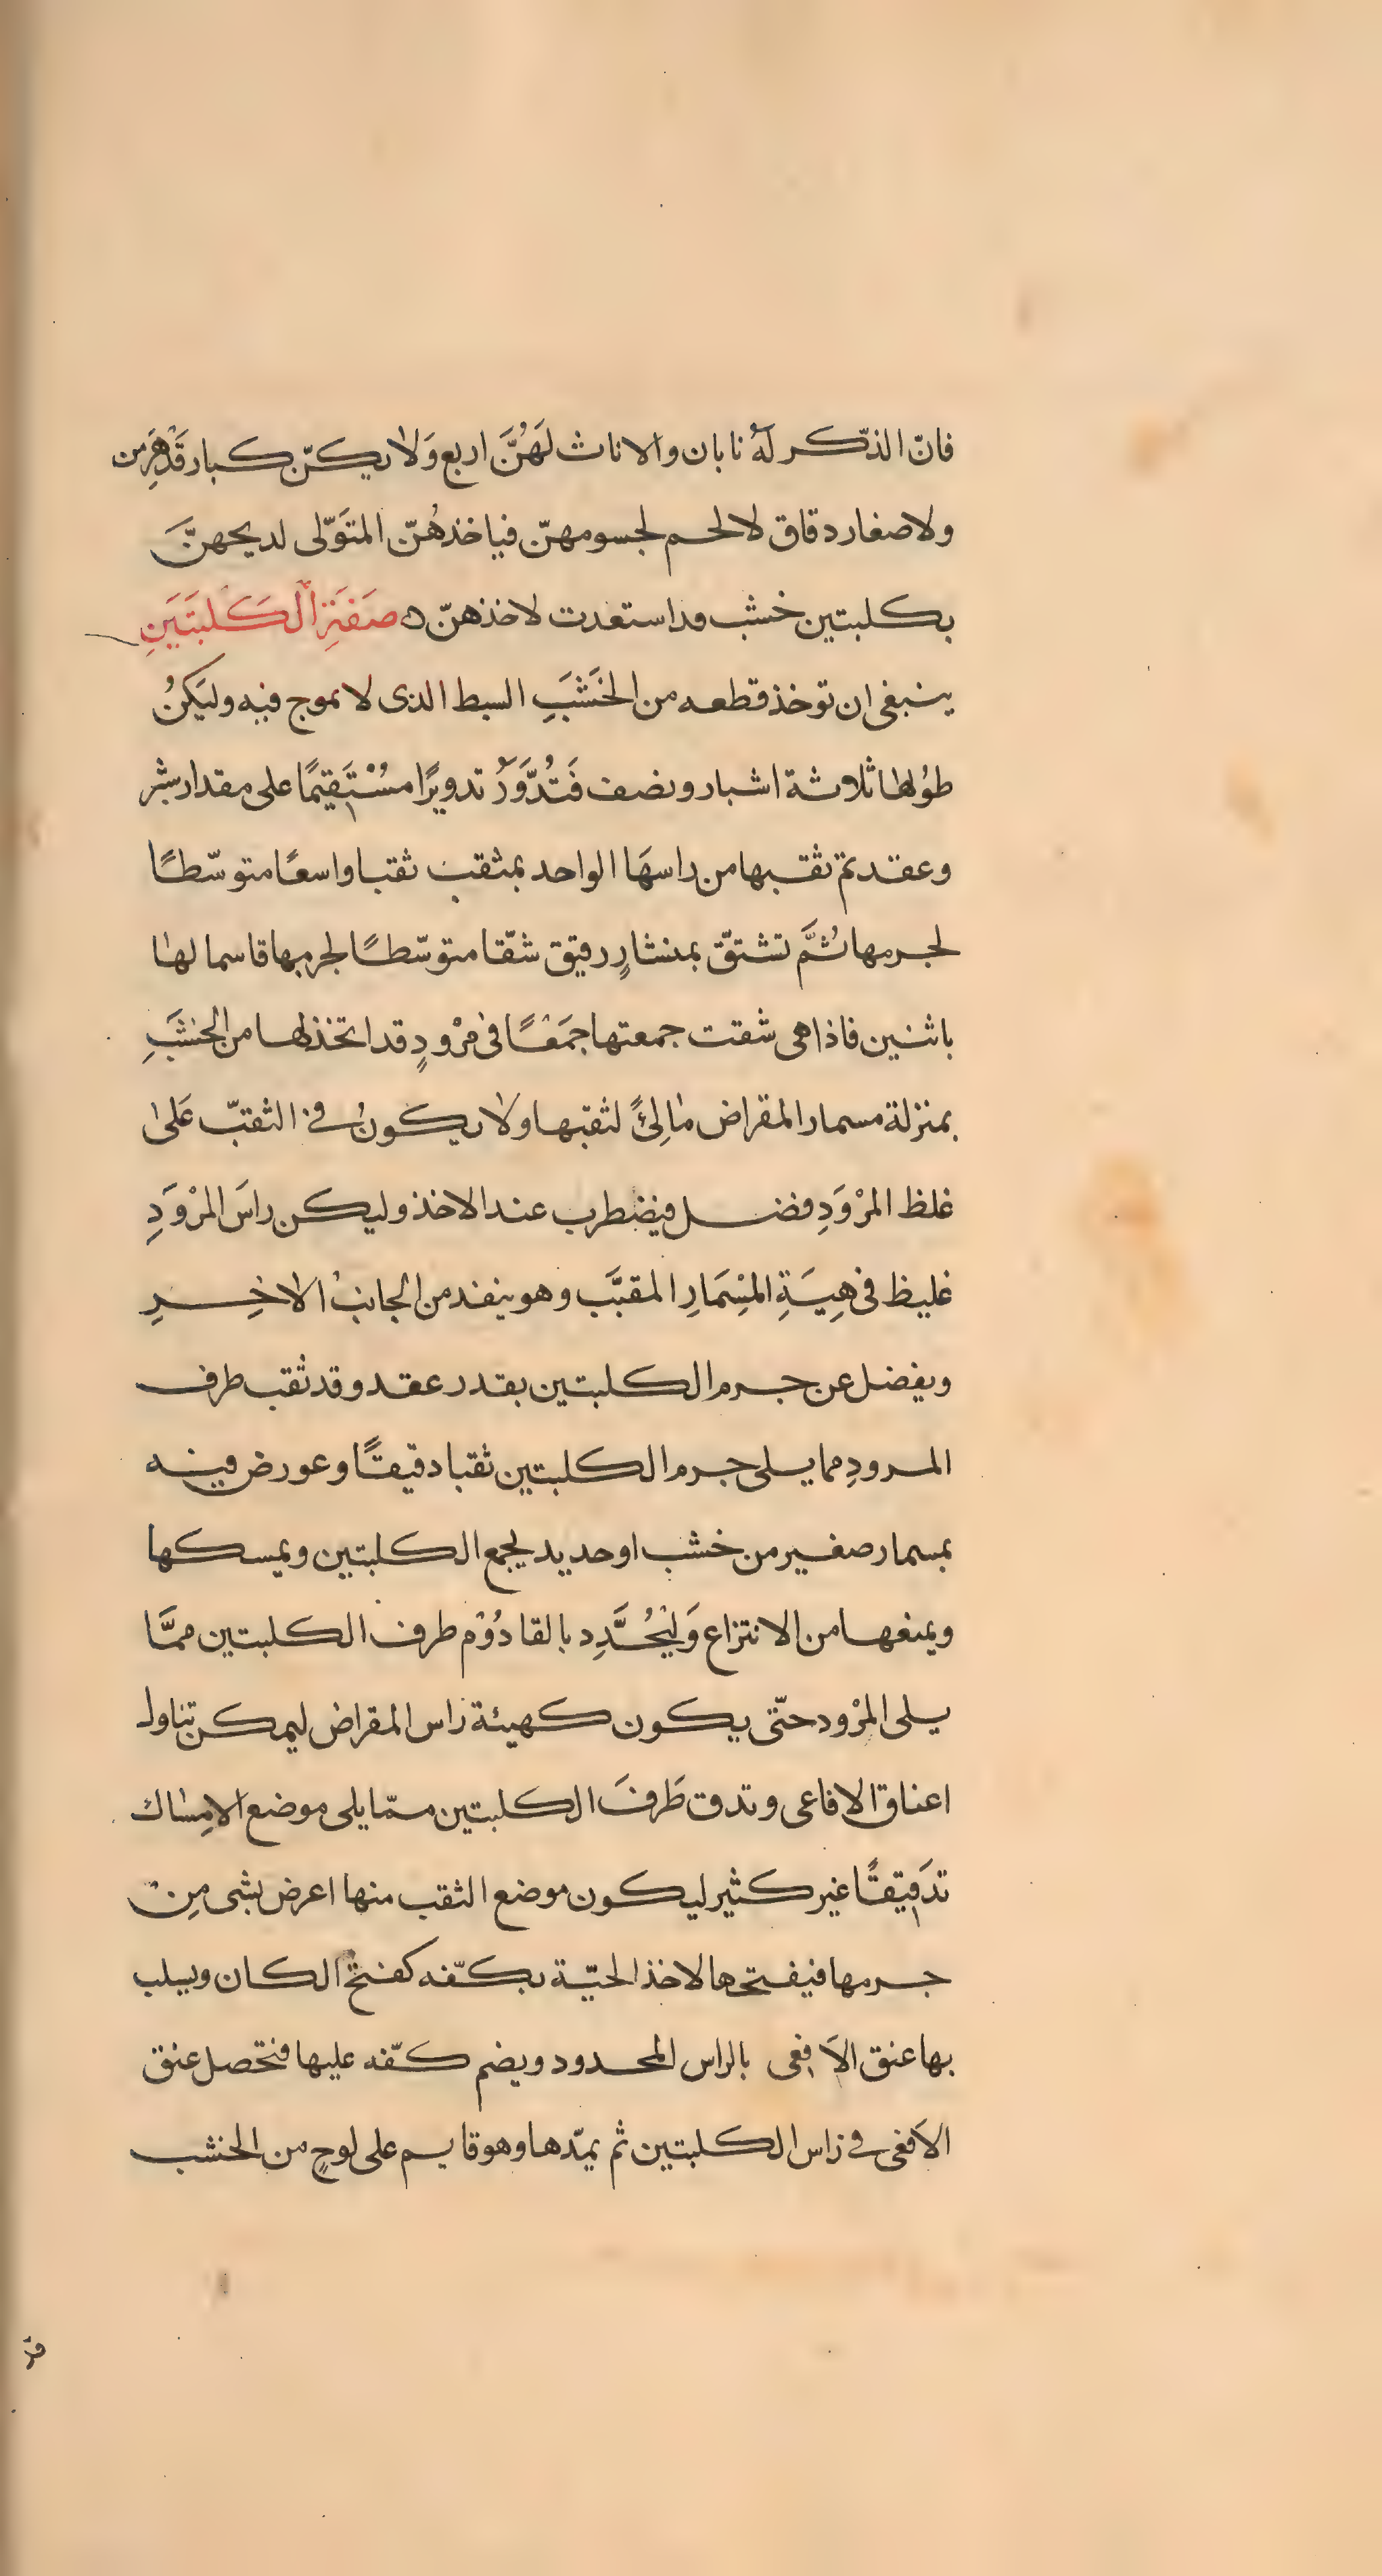 فانّ الذّكر له نابان والاناث لَهُنَّ اربع وَلا يكنّ كبار قَد هَرِمن
ولا صغار دقاق لا لحم لجسومهنّ فياخذهُنّ المتوَلّى لذبحهنَّ
بكلبتين خشب قد استعدت لاخذهنّ ٥ صَفَةِ الْكَلبَتَينِ
ينبغى ان توخذ قطعه من الخَشَبِ السبط الذى لا يموج فيه وليَكنُ
طوُلها ثلاثة اشبار ونصف فَتُدَّوَرُ تدويرًا مُسْتَقِيمًا على مقدار شبر
وعقد ثم تثقبها من راسهَا الواحد بمثقب ثقبا واسعًا متوسّطًا
لجرمها ثُمَّ تشتقّ بمنشارٍ رقيق شقّا متوسّطًا لجرمها قاسما لها
باثنين فاذا هى شقت جمعتها جمَعًا فى مرْودٍ قد اتخذ لها من الخشَبِ
بمنزلة مسمار المقراض مالِئً لثقبها ولا يكونُ فى الثقبّ عَلىٰ
غلظ المرْوَدِ فضل فيضطرب عند الاخذ وليكن راسَ المرْوَدِ
غليظ فى هِيَةِ المِسْمَارِ المقبَّب وهو ينفد من الجانب الاخِرِ
ويفضل عن جرم الكلبتين بقدر عقد وقد ثقب طرف
المرودِ مما يلى جرم الكلبتين ثقبا دقيقًا وعورض فيه
بمسمار صغير من خشب او حديد ليجمع الكلبتين ويمسكها
ويمنعها من الانتزاع وَليُحَدَّدِ بالقادُوْم طرف الكلبتين ممَّا
يلى المرْود حتّى يكون كهيئة راس المقراض ليمكن تناول
اعناق الافاعى وتدق طَرفَ الكلبتين ممّا يلى موضع الامِساك
تدَقيقًا غير كثير ليكون موضع الثقب منها اعرض بشى مِن
جرمها فيفتحها لاخذ الحيّة بكفّه كفتح الكان ويسلب
بها عنق الاَفعى بالراس المحدود ويضم كفّه عليها فتحصل عنق
الاَفعى فى راس الكلبتين ثم يمدّها وهو قايم على لوحٍ من الخشب